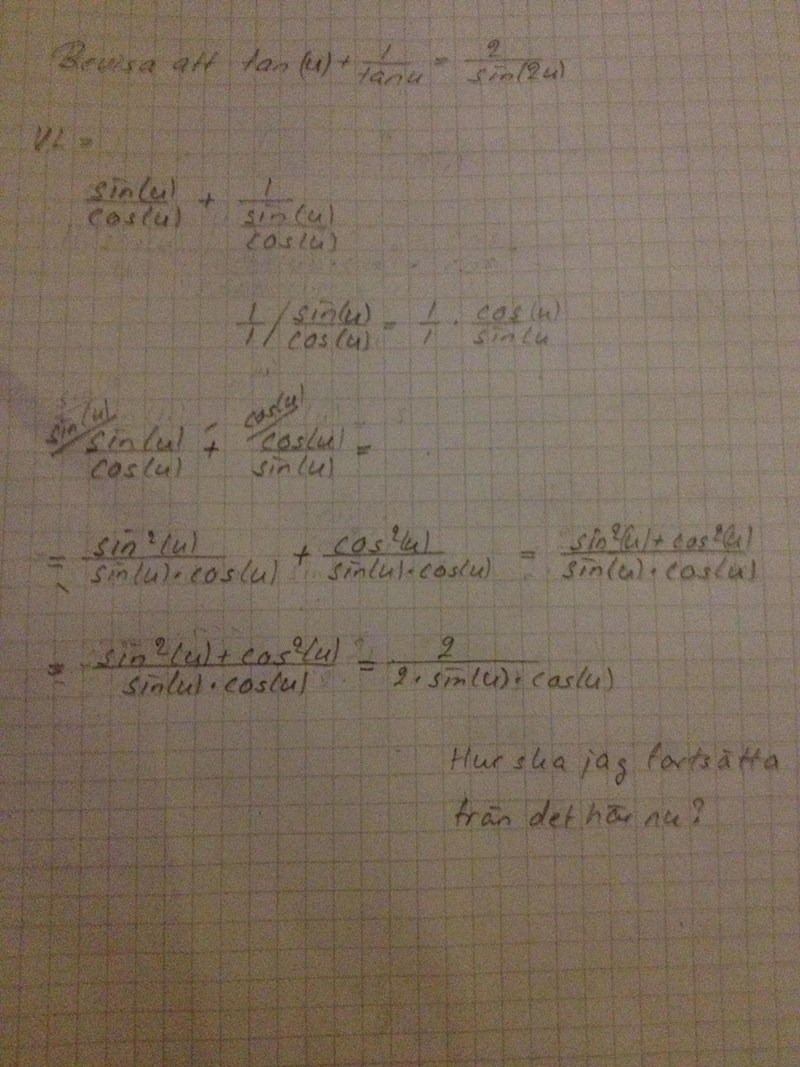 Bevisa att tan(u) + 1/tan u = 2/sin(2u)
VL =
sin(u)/cos(u) + 1/(sin(u)/cos(u))
1/1 / sin(u)/cos(u) = 1/1 · cos(u)/sin(u
sin(u)/ sin(u)/cos(u) + cos(u)/ cos(u)/sin(u) =
= sin²(u)/(sin(u)·cos(u)) + cos²(u)/(sin(u)·cos(u)) = (sin²(u)+cos²(u))/(sin(u)·cos(u))
= (sin²(u)+cos²(u))/(sin(u)·cos(u)) = 2/(2·sin(u)·cos(u))
Hur ska jag fortsätta
från det här nu?